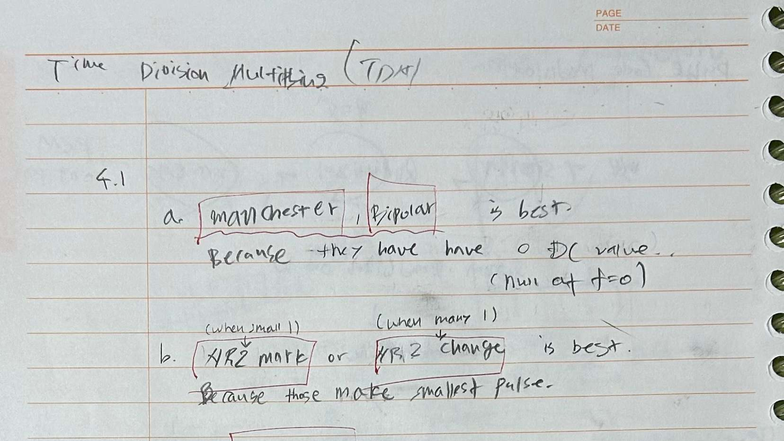 PAGE
DATE
Time Division Multiplxing (TDM)
4.1
a. Manchester, Bipolar is best.
Because they have have 0 DC value..
(null at f=0)
(when small 1) (when many 1)
b. NRZ mark or NRZ change is best.
Because those make smallest pulse.